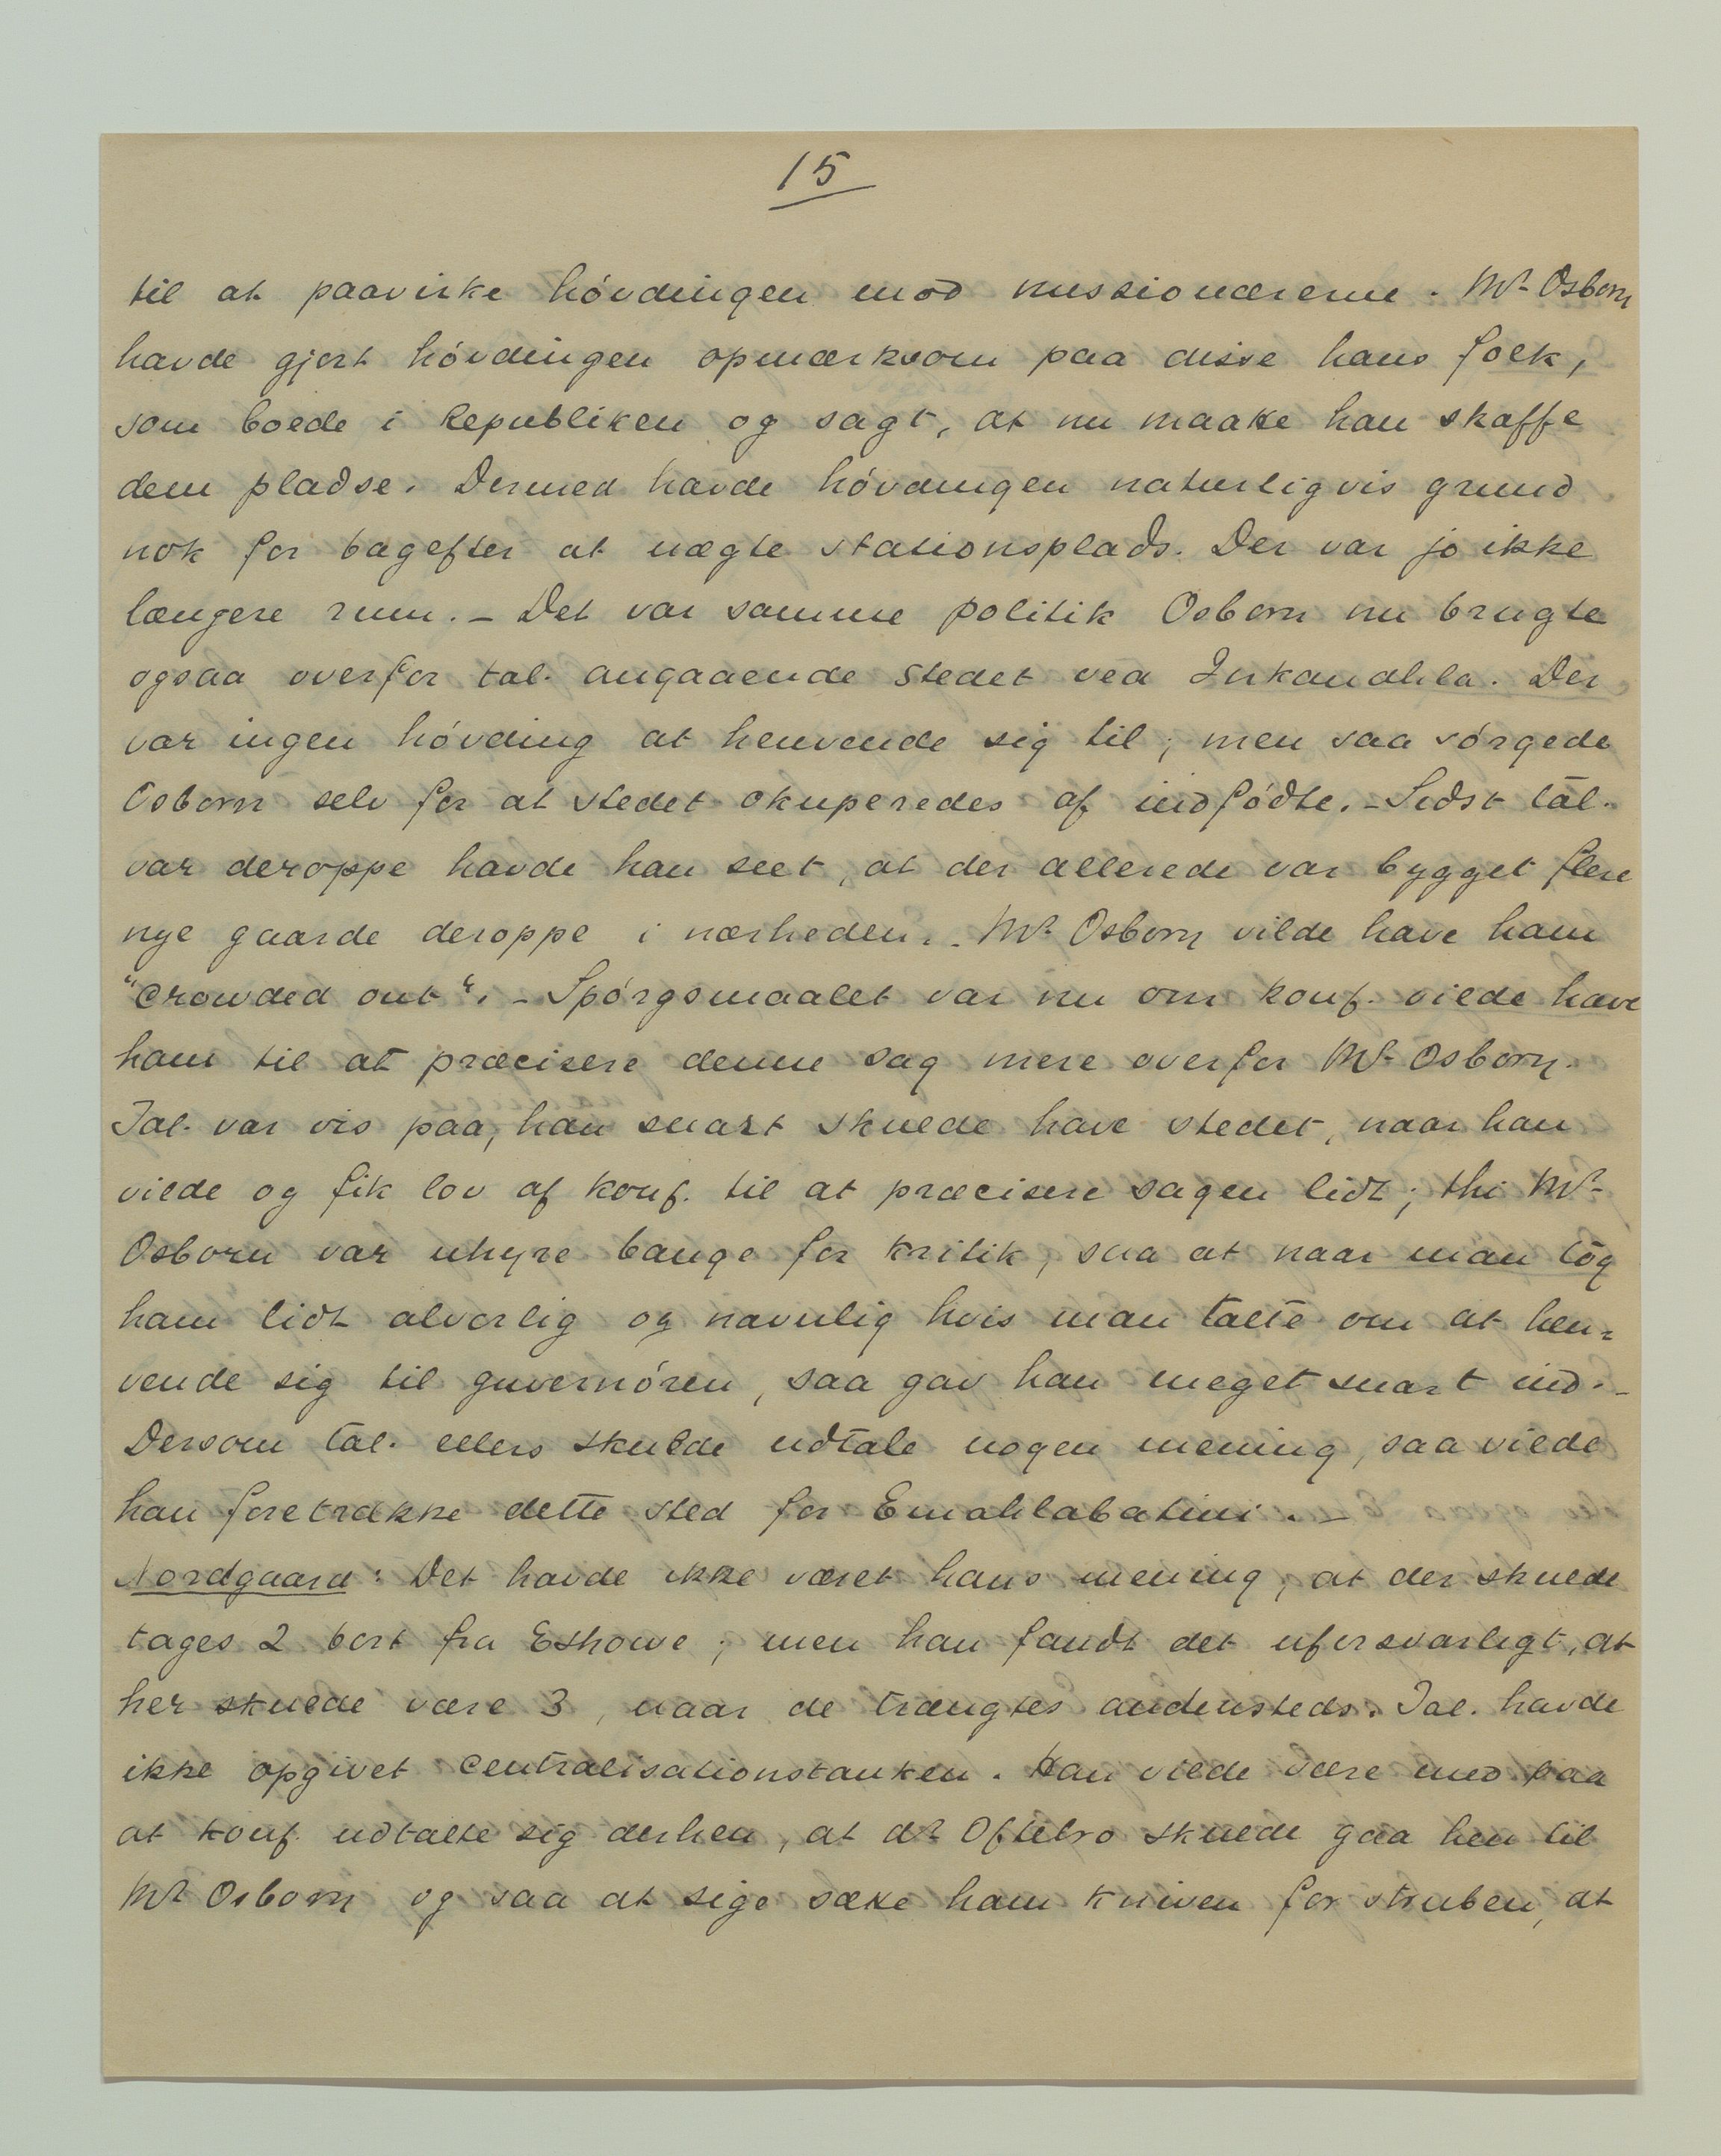 15
til at paavirke høvdingen mod missionærerne. Mr Osborn
havde gjort høvdingen opmærksom paa disse hans folk,
som boede i Republiken og sagt, at nu maatte han skaffe
dem pladse. Dermed havde høvdingen naturligvis grund
nok for bagefter at nægte stationsplads. Der var jo ikke
længere rum. – Det var samme politik Osborn nu brugte
ogsaa overfor tal. angaaende stedet ved Inkandhla. Der
var ingen høvding at henvende sig til; men saa sørgede
Osborn selv for at stedet okuperedes af indfødte. – Sidst tal.
var deroppe havde han seet, at der allerede var bygget flere
nye gaarde deroppe i nærheden. – Mr Osborn vilde have ham
"crowded out". – Spørgsmaalet var nu om konf. vilde have
ham til at præcisere denne sag mere overfor Mr Osborn.
Tal. var vis paa, han snart skulde have stedet, naar han
vilde og fik lov af konf. til at præcisere sagen lidt; thi Mr
Osborn var uhyre bange for kritik, saa at naar man tog
ham lidt alvorlig og navnlig hvis man talte om at hen=
vende sig til guvernøren, saa gav han meget snart ind. –
Dersom tal. ellers skulde udtale nogen mening, saa vilde
han foretrække dette sted for Emahlabatini. –
Nordgaard: Det havde ikke været hans mening, at der skulde
tages 2 bort fra Eshowe; men han fandt det uforsvarligt, at
her skulde være 3, naar de trængtes andensteds. Tal. havde
ikke opgivet centralisationstanken. Han vilde være med paa
at konf. udtalte sig derhen, at dr Oftebro skulde gaa hen til
Mr Osborn og saa at sige sætte ham kniven for struben, at